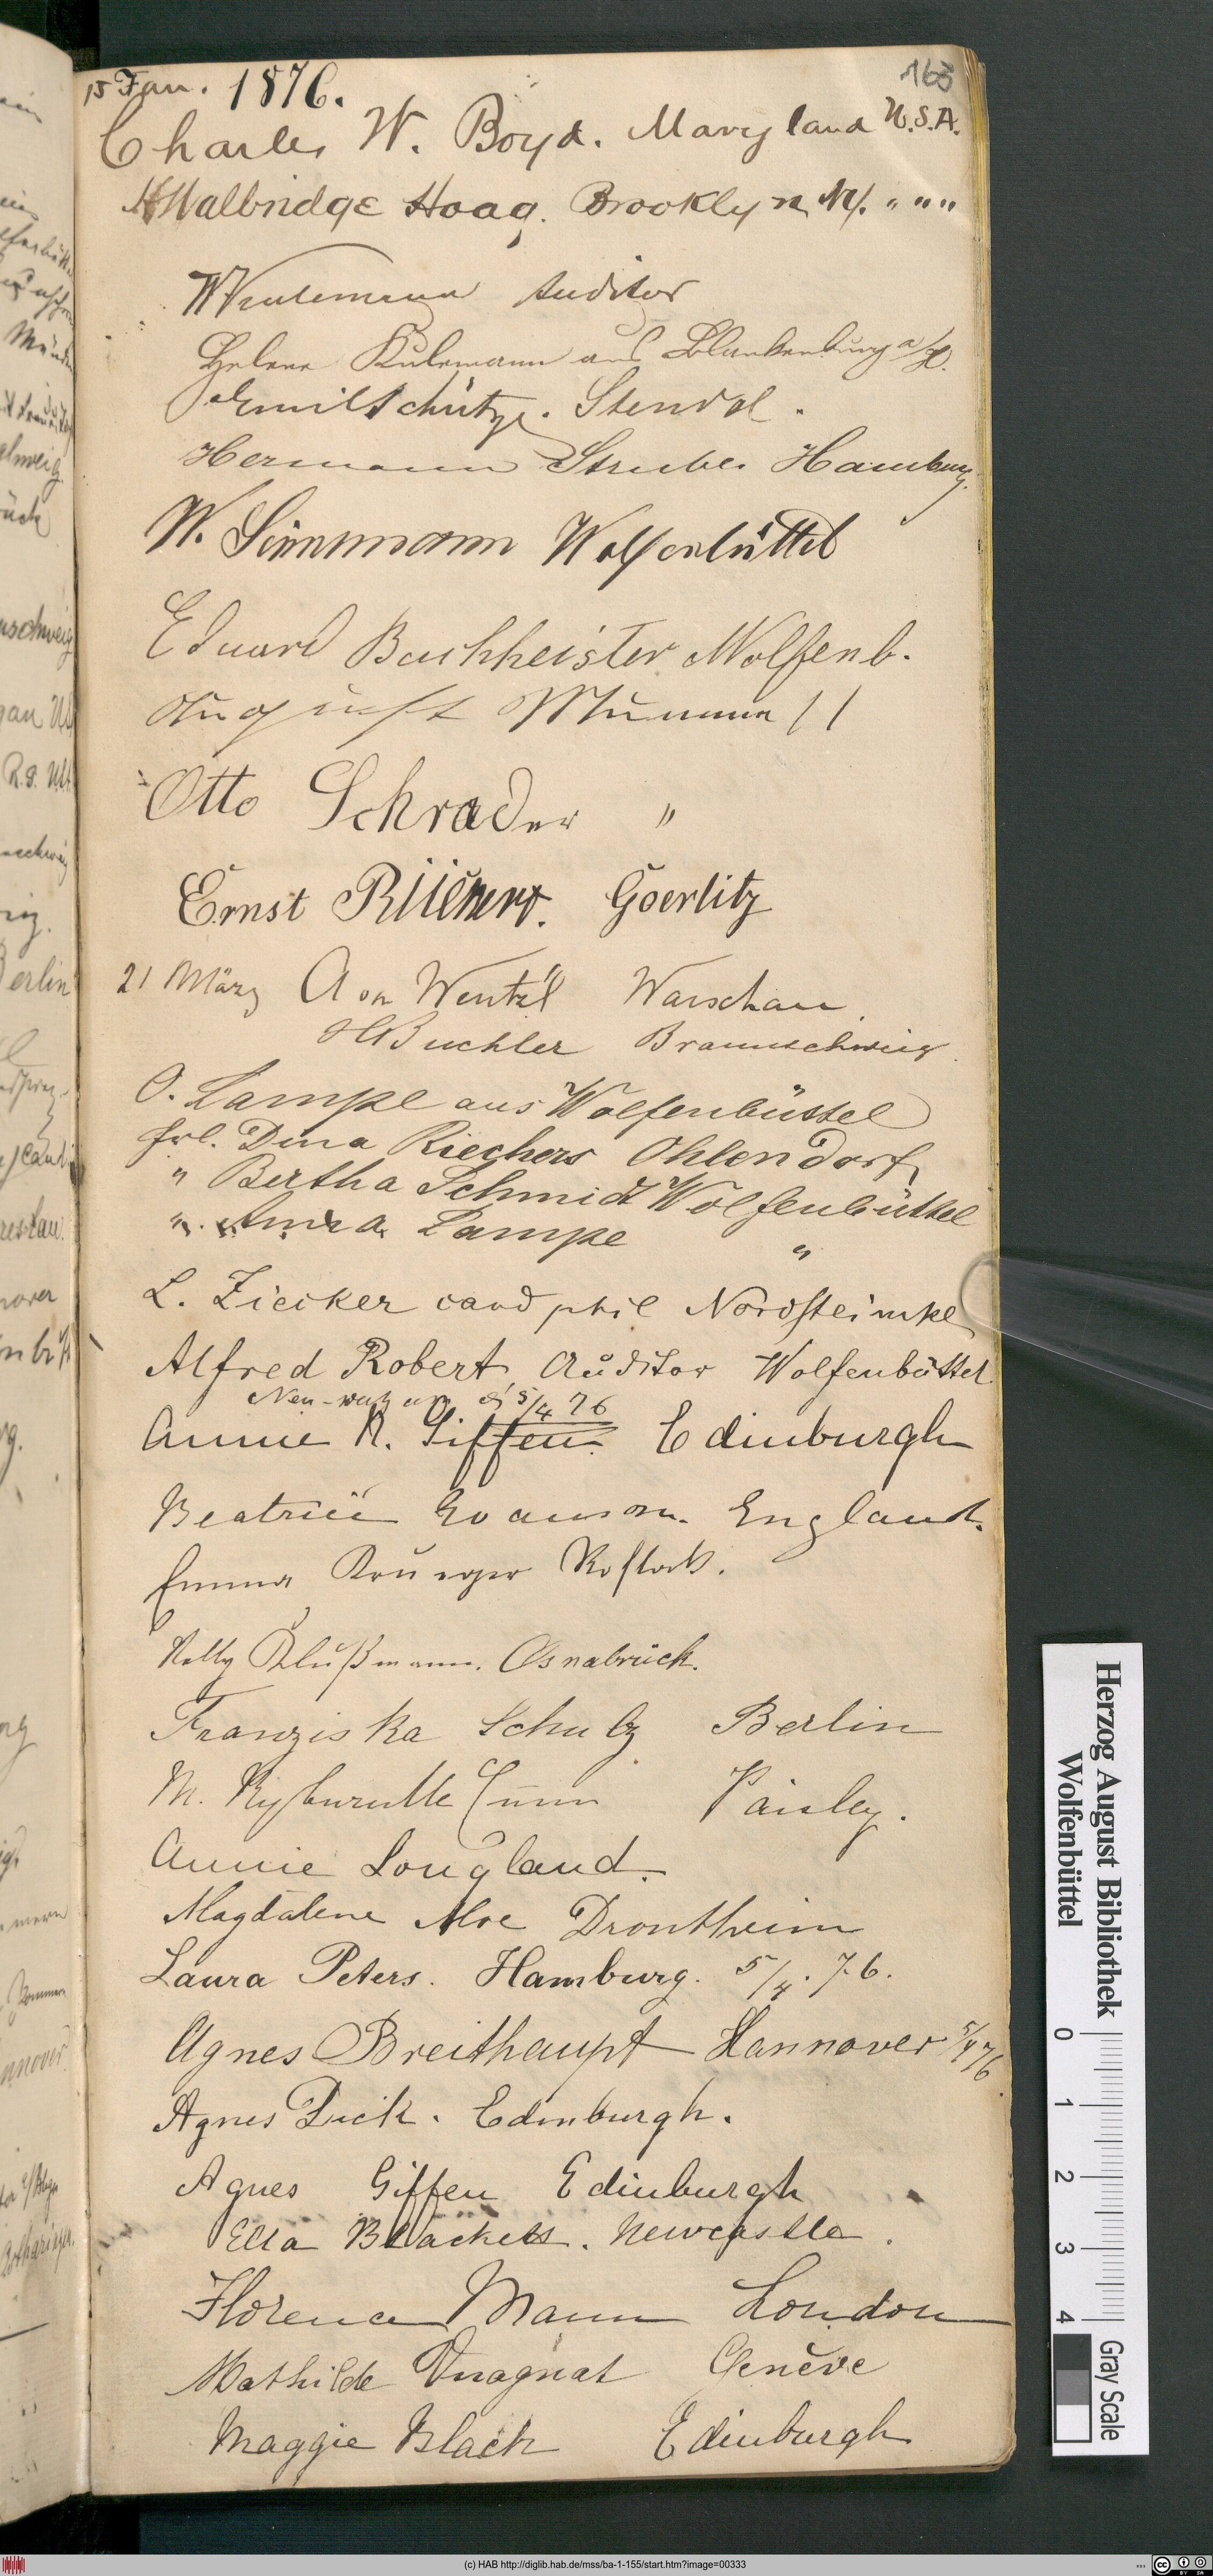 163
15 Jan. 1876.
Charles W. Boyd. Maryland U.S.A.
Walbridge Hoag. Brooklyn NY. " " "
Auditor
Helene Kulemann aus Blankenburg a/H.
Emil Schütze. Stendal.
Hermann Strube. Hamburg.
W. Wolfenbüttel
Eduard Buchheister Wolfenb.
August Mumme //
Otto Schrader "
Ernst Goerlitz
21 März Warschau
Buchler Braunschweig
O. Lampe aus Wolfenbüttel
Frl. Dina Riechers Ohlendorf
" Bertha Schmidt Wolfenbüttel
" Anna Lampe "
L. Ziecker cand phil Nordsteimke
Alfred Robert Auditor Wolfenbüttel
5/4 76
Annie R. Giffen. Edinburgh
Beatrice England.
Emma Krueger Rostock.
Osnabrück.
Franziska Schulz Berlin
M. Paisley.
Annie Longland.
Magdalene Moe Drontheim
Laura Peters. Hamburg. 5/4. 76.
Agnes Breithaupt Hannover 5/4 76
Agnes Dick. Edinburgh.
Agnes Giffen Edinburgh
Ella Blackett. Newcastle.
Florence Mann London
Mathilde Vuagnat Genève
Maggie Black Edinburgh
Herzog August Bibliothek
Wolfenbüttel
0 1 2 3 4
Gray Scale
(c) HAB http://diglib.hab.de/mss/ba-1-155/start.htm?image=00333